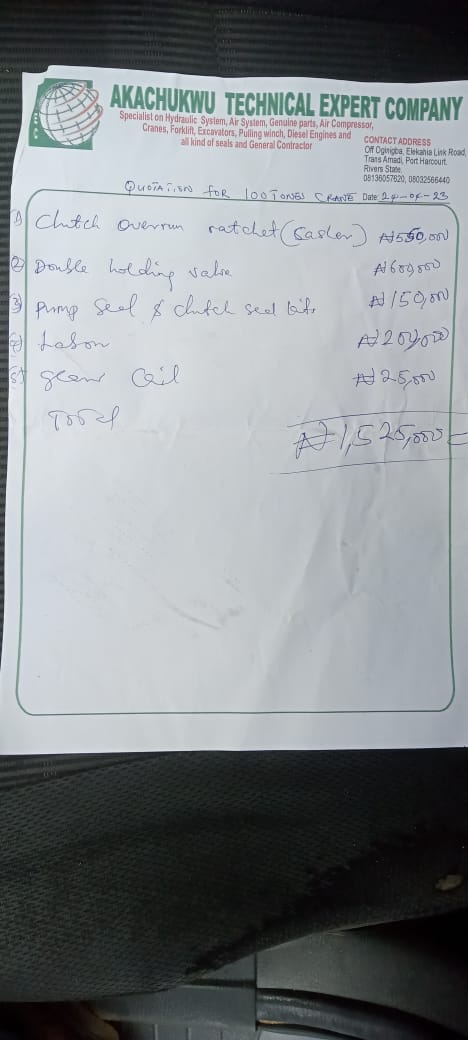 AKACHUKWU TECHNICAL EXPERT COMPANY
Specialist on Hydraulic System, Air System, Genuine parts, Air Compressor,
Cranes, Forklift, Excavators, Pulling winch, Diesel Engines and
all kind of seals and General Contractor
CONTACT ADDRESS
Off Oginigba, Elekahia Link Road,
Trans Amadi, Port Harcourt.
Rivers State.
08136057620, 08032566440
QUOTATION FOR 100 TONES CRANE Date: 24-04-23
1) Clutch overrun ratchet ₦550,000
2) Double holding valve ₦600,000
3) Pump seal & clutch seal kits ₦150,000
4) Labour ₦200,000
5) Gear Oil ₦25,000
Total
₦1,525,000=